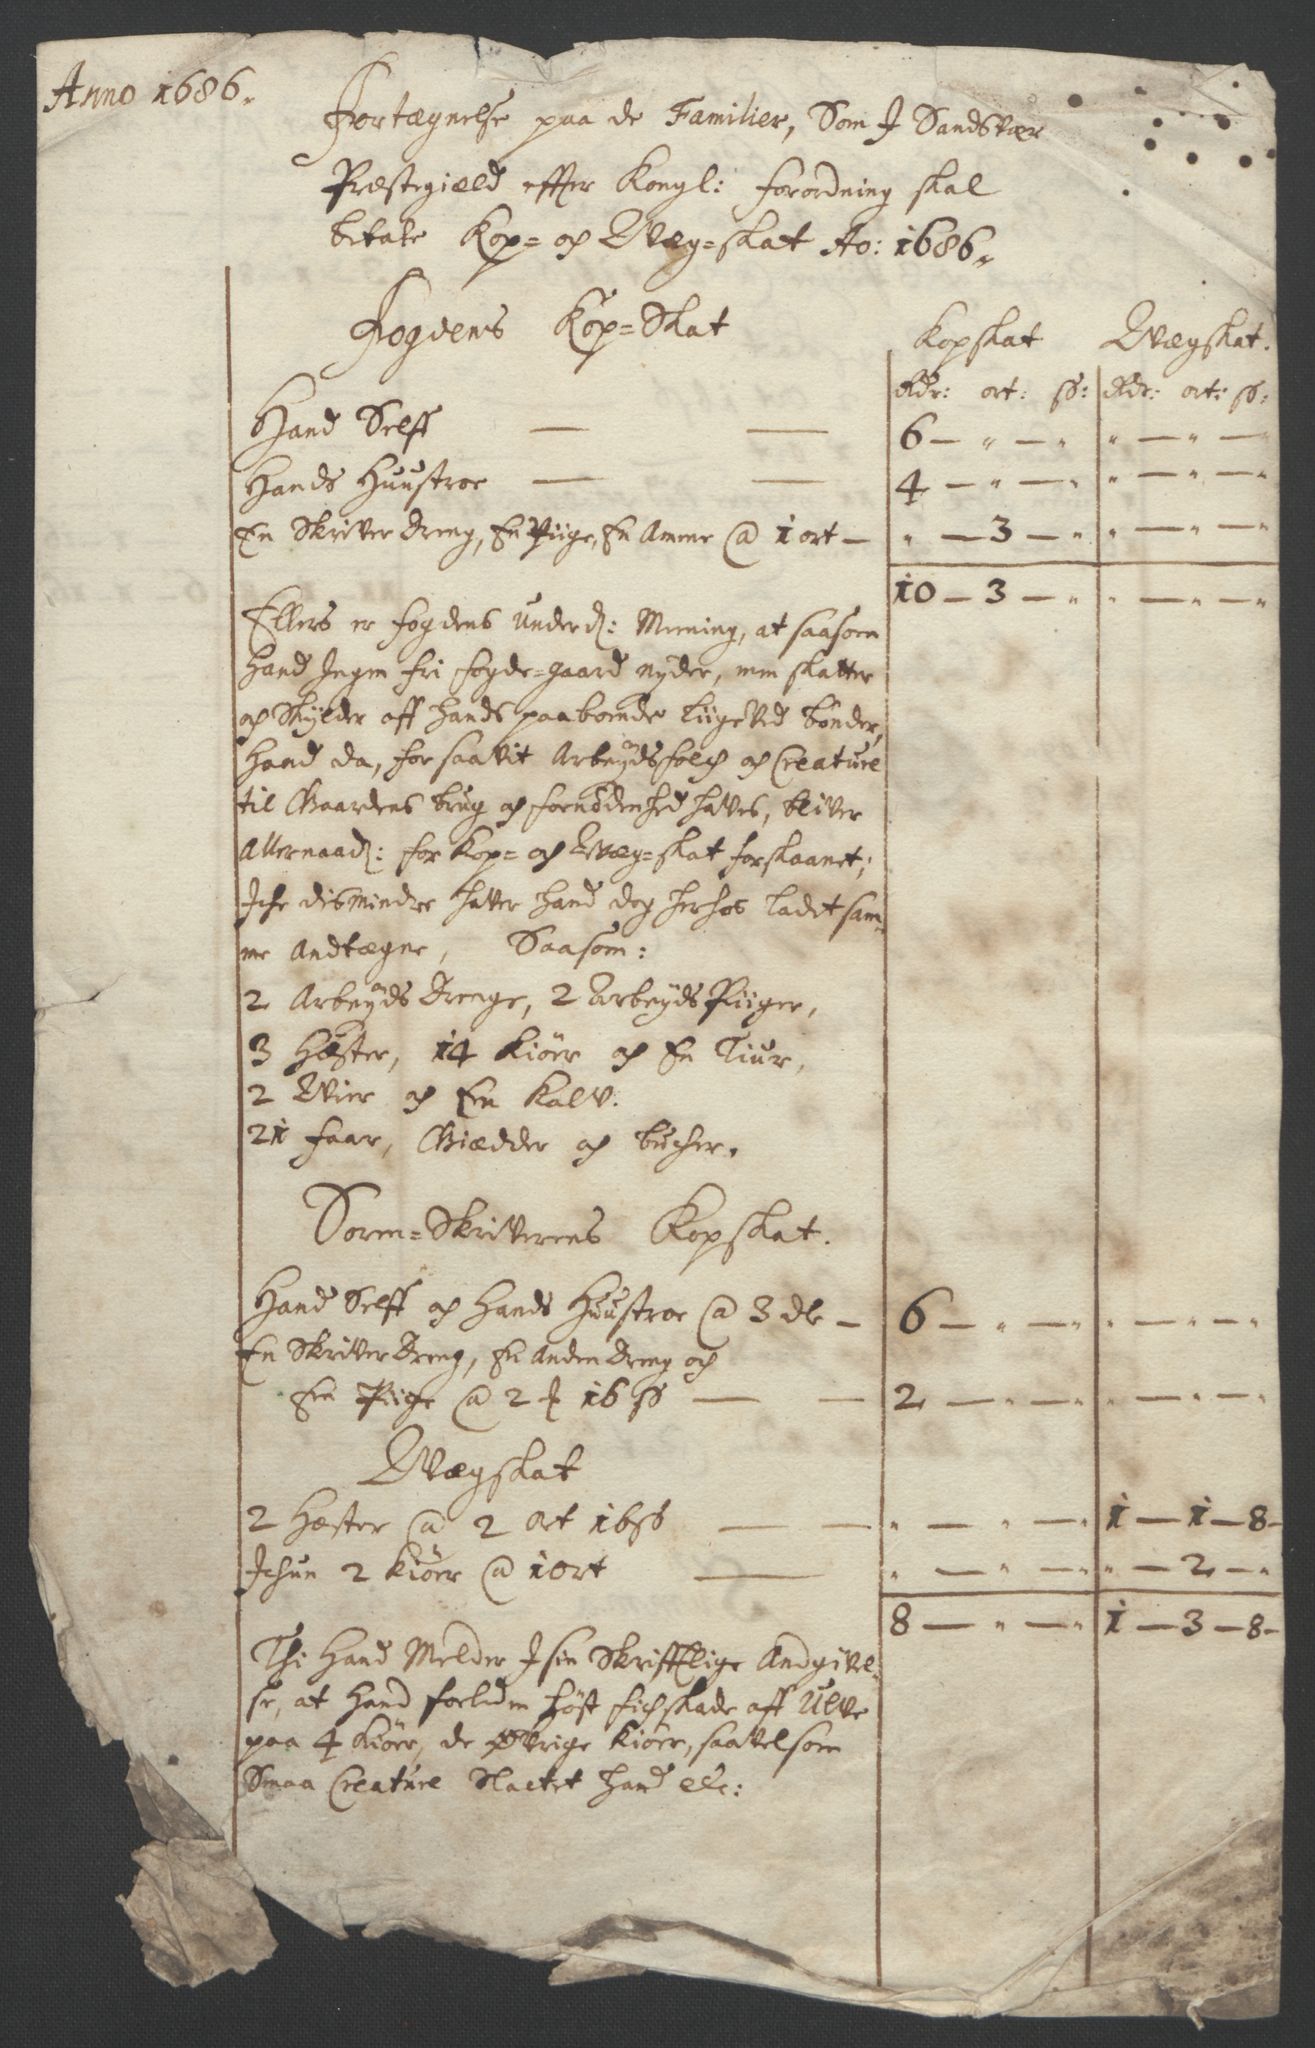 Anno 1686.
Fortægnelse paa de Familier, Som J Sandsvær
Præstegiæld effter Kongl: forordning skal
betale Kop= og Qvæg=skat Ao: 1686.
Fogdens Kop=Skat
Kopskat Qvægskat.
Rdr: ort: sß: Rdr: ort: sß:
Hand Selff — — 6 — „ — „ „ — „ — „
Hands Huustroe — — 4 — „ — „ „ — „ — „
En Skriver dreng, En Piige, En Amme @ 1 ort — „ — 3 — „ „ — „ — „
10 — 3 — „ „ — „ — „
Ellers er fogdens underd: Meening, at saasom
Hand Ingen fri fogde=gaard nyder, men skatter
og Skylder aff hands paaboende liige ved bønder,
Hand da, for saavit Arbeyds folch og Creature
til Gaardens brug og fornødenhed haves, bliver
Allernaad: for Kop= og Qvæg=skat forskaanet;
Iche dismindre haver hand dog herhos ladet sam-
me Andtægne, Saasom:
2 Arbeyds Drenge, 2 Arbeyds Piiger,
3 Hæster, 14 Kiöer og En Tiur,
2 Qvier og Een Kalv.
21 faar, Giædder og bucher.
Soren=Skriverens Kopskat.
Hand Selff og Hands Huustroe @ 3 dlr — 6 — „ — „ „ — „ — „
En Skriver Dreng, En anden Dreng og
Een Piige @ 2 ƒ 16 sß — — 2 — „ — „ „ — „ — „
Qvægskat
2 Hæster @ 2 ort 16 sß — — „ — „ — „ 1 — 1 — 8 —
Ichun 2 Kiöer @ 1 ort — „ — „ — „ „ — 2 — „
8 — „ — „ 1 — 3 — 8 —
Thi Hand Melder J sin Skrifftlige Andgivel-
se, at Hand forleden høst fich skade aff Ulve
paa 4 Kiöer, de øvrige Kiöer, saavelsom
Smaa Creature Slactet hand etc: